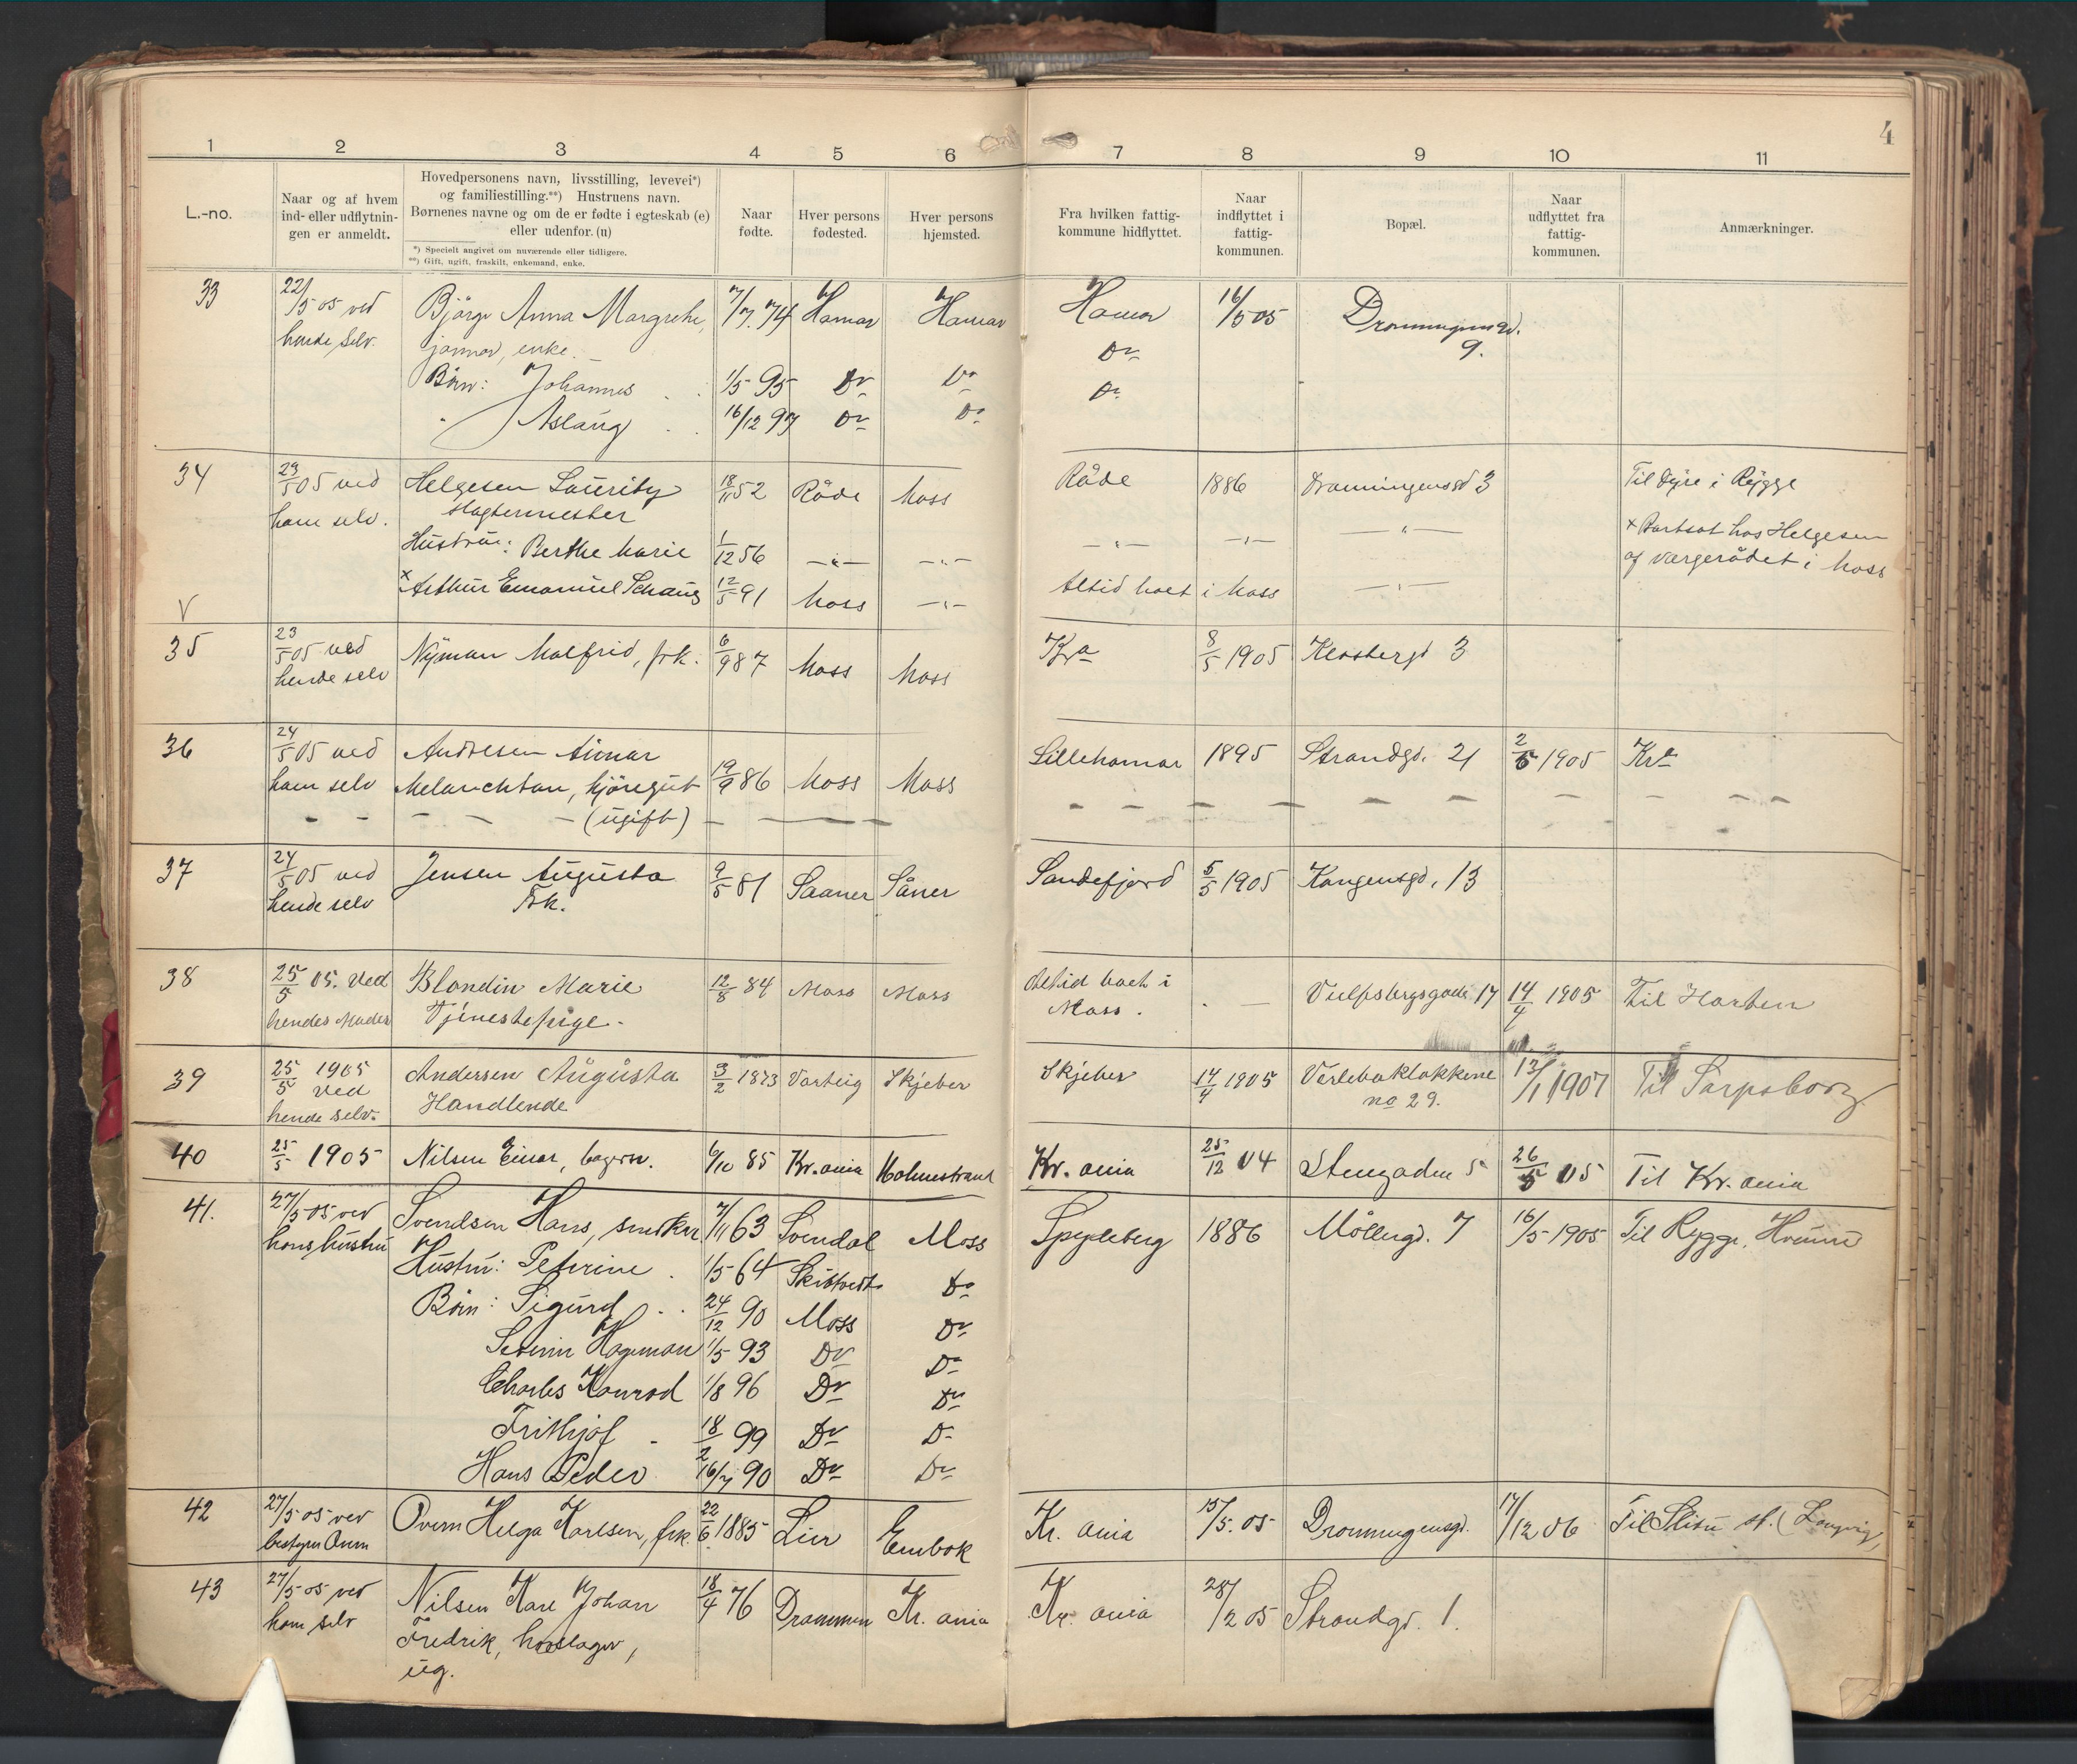 4
1 2 3 4 5 6 7 8 9 10 11
L.-no.
Naar og af hvem
ind- eller udflytnin-
gen er anmeldt.
Hovedpersonens navn, livsstilling, levevei*)
og familiestilling.**) Hustruens navn.
Børnenes navne og om de er fødte i egteskab (e)
eller udenfor. (u)
*) Specielt angivet om nuværende eller tidligere.
**) Gift, ugift, fraskilt, enkemand, enke.
Naar
fødte.
Hver persons
fødested.
Hver persons
hjemsted.
Fra hvilken fattig-
kommune hidflyttet.
Naar
indflyttet i
fattig-
kommunen.
Bopæl.
Naar
udflyttet fra
fattig-
kommunen.
Anmærkninger.
33 22/5 05 ved Bjørge Anna Margrethe, 7/7. 74 Hamar Hamar Hamar 16/5 05
hende selv. enke. Do 9.
Børn: Johannes 1/5 95 Do Do Do
Aslaug 16/12 97 Do Do
34 23/5 05 ved Helgesen Lauritz 18/11 52 Råde Moss Råde 1886 Dronningensgd 3 Til Dyre i Rygge
ham selv. slagtermester
Hustru: Berthe Marie 1/12 56 —"— —"— —"— —"— —"— × Bortsat hos Helgesen
af værgerådet i Moss
V × Arthur Emanuel Schaug 12/5 91 Moss —"— Altid boet i Moss —"—
35 23/5 05 ved Nyman Malfrid, frk. 6/9 87 Moss Moss Kra 8/5 1905 3
hende selv
36 24/5 05 ved Andresen Einar Lillehamar 1895 Strandgd. 21 2/6 1905 Kra
ham selv Melanchton, kjöregut 19/9 86 Moss Moss
(ugift)
37 24/5 05 ved Jensen Augusta 9/5 81 Saaner Såner Sandefjord 5/5 1905 Kongensgd. 13
hende selv Frk.
38 25/5 05. Ved Blondin Marie 12/8 84 Moss Moss Altid boet i Vulfsbergsgade 17 14/4 1905 Til Horten
hendes Moder Tjenestepige. Moss.
39 25/5 1905 Andersen Augusta 3/2 1873 Varteig Skjeber Skjeber 14/4 1905 13/1 1907 Til Sarpsborg
ved Handlende no 29.
hende selv.
40 25/5 1905 Nilsen Einar, bagersv. 6/10 85 Kr.ania Holmestrand Kr.ania 25/12 04 Stengaden 5 26/5 05 Til Kr.ania
41. 27/5 05 ved Svendsen Hans, snedker 7/11 63 Svendal Moss Spydeberg 1886 Möllergd. 7 16/5 1905 Til Rygge,
hans hustru Hustru: Petrine 1/5 64 Skibtvedt Do
Börn: Sigurd 24/12 90 Moss Do
Severin Hageman 1/5 93 Do Do
Charles Konrad 1/8 96 Do Do
Frithjof 18/2 99 Do Do
Hans Peder 16/7 90 Do Do
42 27/5 05 ved Helga Karlsen, frk. 22/6 1885 Lier Enebak Kr.ania 15/5. 05 Dronningensgd. 17/12 06 Til Slitu st.
bestyrer
43 27/5 05 ved Nilsen Karl Johan 18/4 76 Drammen Kr.ania Kr.ania 28/2 05 Strandgd. 1.
ham selv Fredrik, hovslager,
ug.